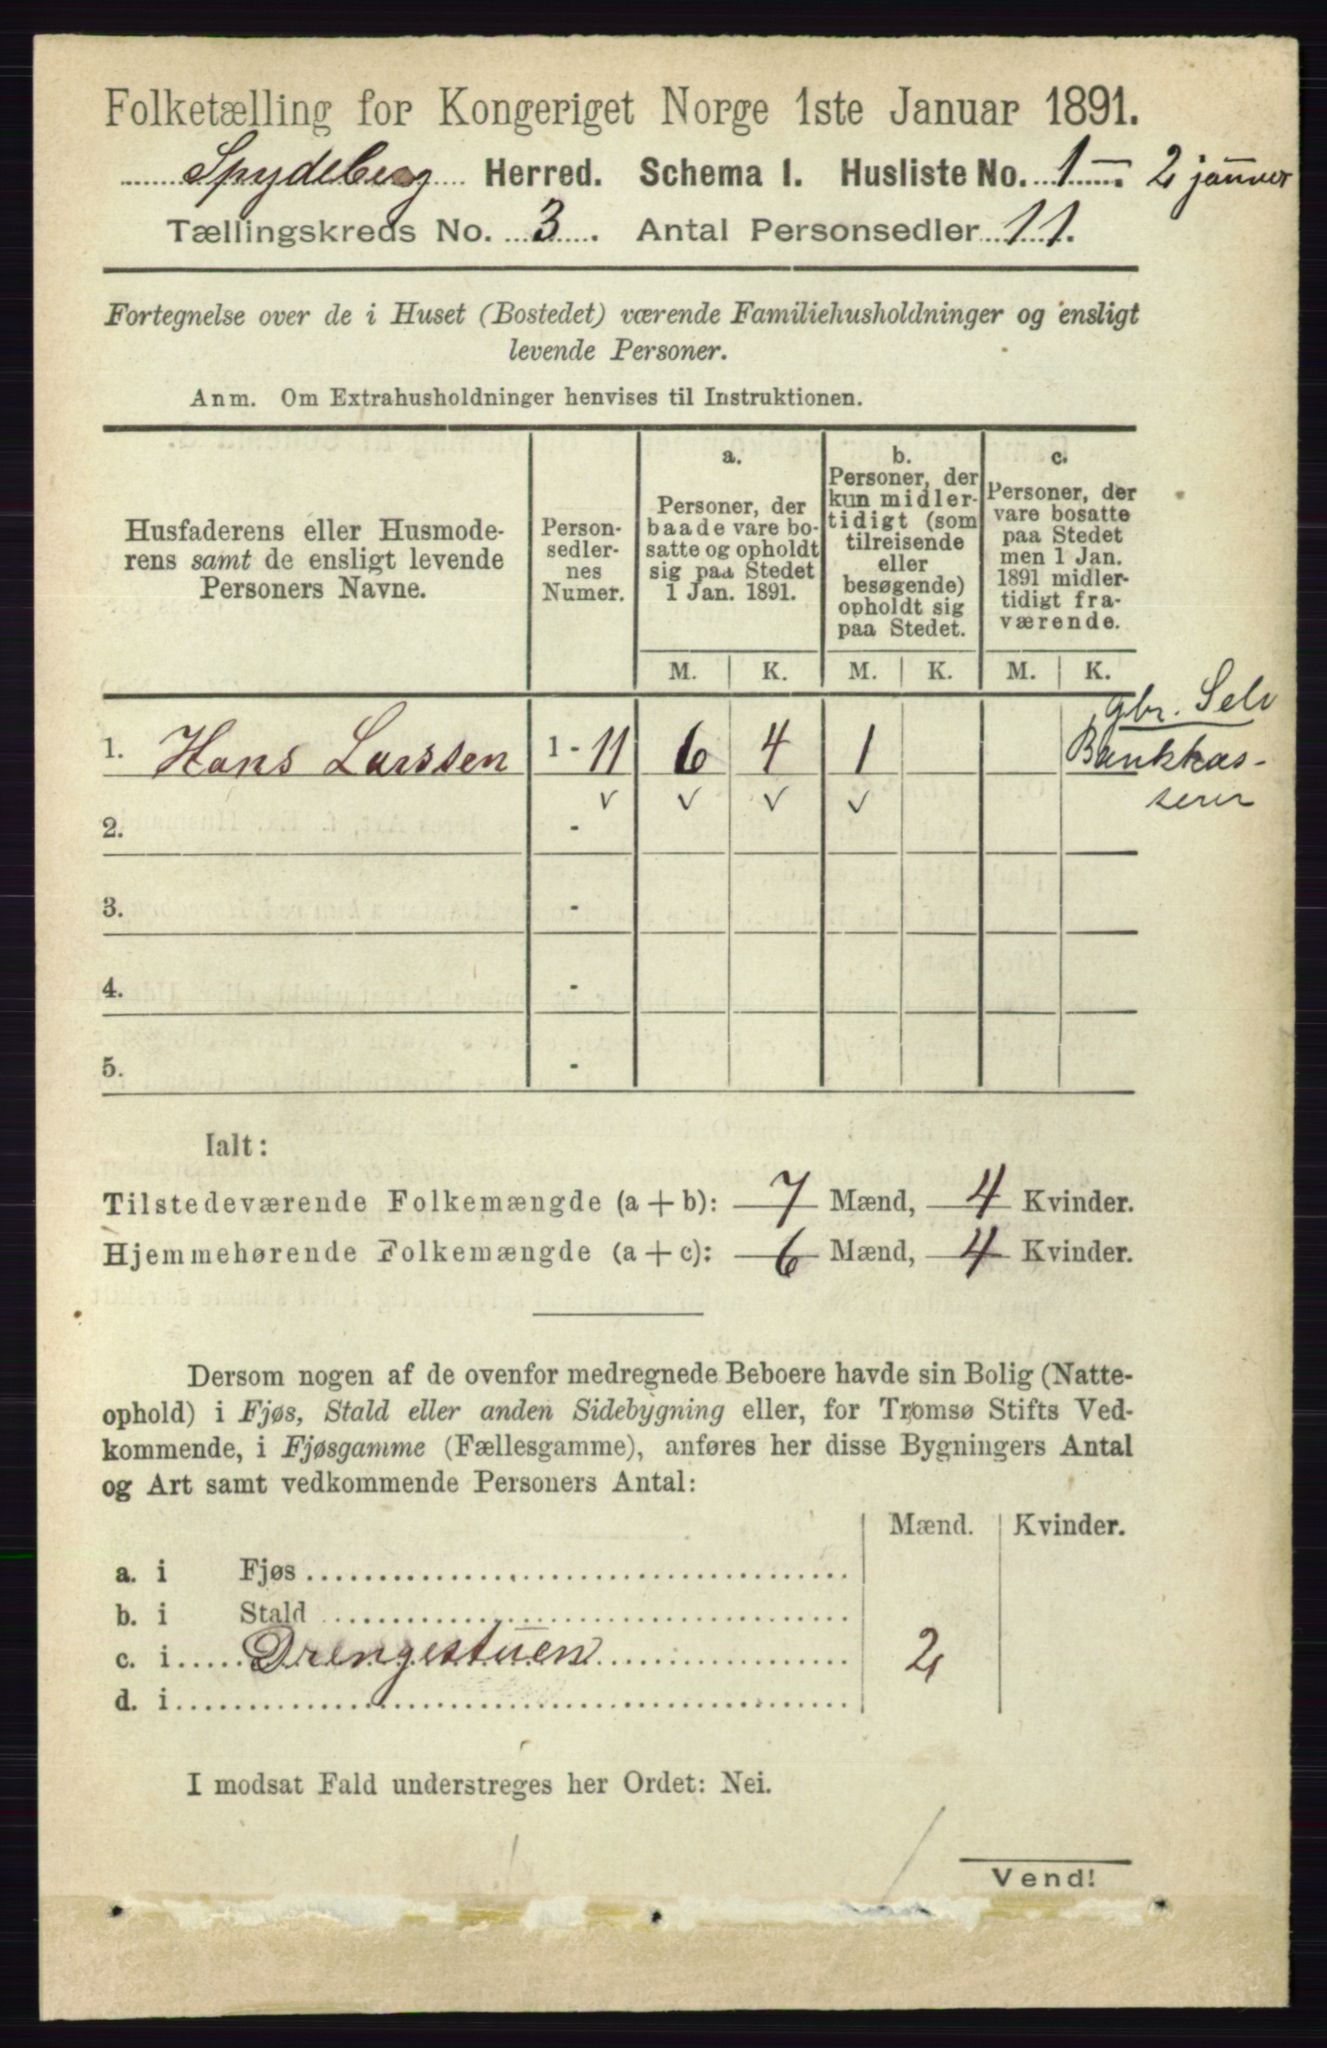 Folketælling for Kongeriget Norge 1ste Januar 1891.
Spydeberg Herred. Schema I. Husliste No. 1 2 januar
Tællingskreds No. 3. Antal Personsedler 11.
Fortegnelse over de i Huset (Bostedet) værende Familiehusholdninger og ensligt
levende Personer.
Anm. Om Extrahusholdninger henvises til Instruktionen.
Husfaderens eller Husmode-
rens samt de ensligt levende
Personers Navne.
Person-
sedler-
nes
Numer.
a.
Personer, der
baade vare bo-
satte og opholdt
sig paa Stedet
1 Jan. 1891.
b.
Personer, der
kun midler-
tidigt (som
tilreisende
eller
besøgende)
opholdt sig
paa Stedet.
c.
Personer, der
vare bosatte
paa Stedet
men 1 Jan.
1891 midler-
tidigt fra-
værende.
M. K. M. K. M. K.
gbr. Selv
1. Hans Larssen 1 - 11 6 4 1 Bankkas-
serer
✓ ✓ ✓ ✓
2. -
3. -
4. -
5. -
Ialt:
Tilstedeværende Folkemængde (a + b): 7 Mænd, 4 Kvinder.
Hjemmehørende Folkemængde (a + c): 6 Mænd, 4 Kvinder.
Dersom nogen af de ovenfor medregnede Beboere havde sin Bolig (Natte-
ophold) i Fjøs, Stald eller anden Sidebygning eller, for Tromsø Stifts Ved-
kommende, i Fjøsgamme (Fællesgamme), anføres her disse Bygningers Antal
og Art samt vedkommende Personers Antal:
Mænd. Kvinder.
a. i Fjøs
b. i Stald
c. i Drengestuen 2
d. i
I modsat Fald understreges her Ordet: Nei.
Vend!